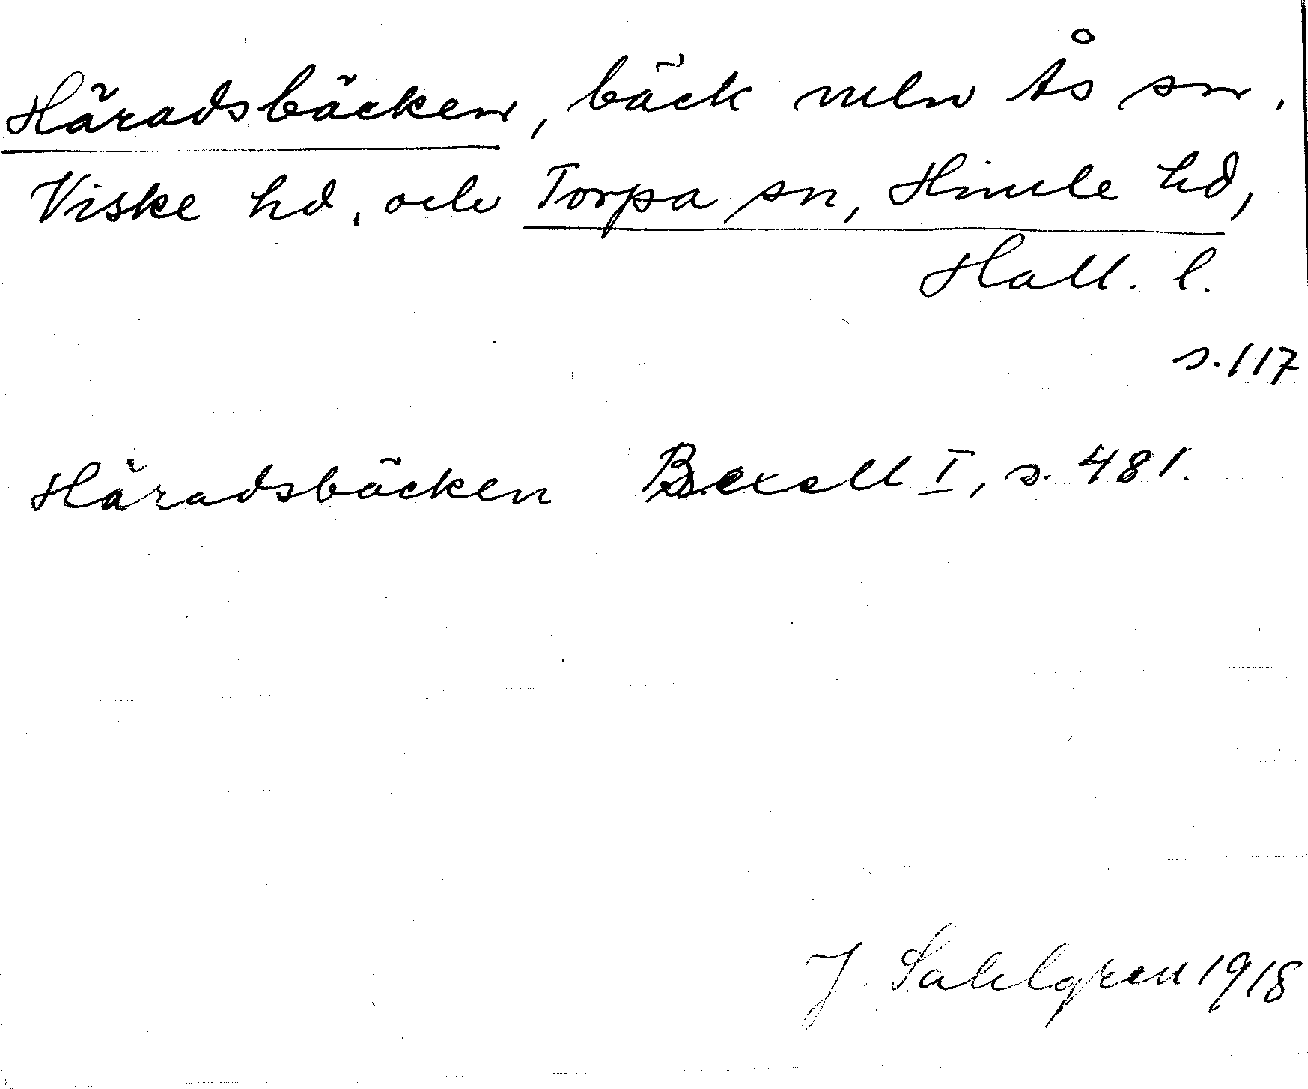 Häradsbäcken, bäck meln Ås sn.
Viske hd. och Torpa sn, Himle hd,
Hall. l.
s. 117
Häradsbäcken Bexell I, s. 481.
J. Sahlgren 1918